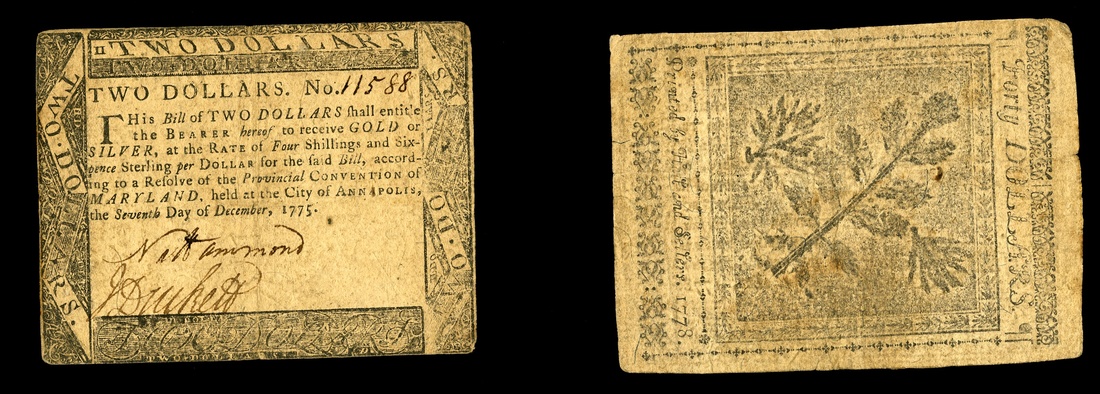 II TWO DOLLARS
TWO DOLLARS
TWO DOLLARS
TWO DOLLARS. No. 11588
THis Bill of TWO DOLLARS shall entitle
the BEARER hereof to receive GOLD or
SILVER, at the RATE of Four Shillings and Six-
pence Sterling per DOLLAR for the said Bill, accord-
ing to a Resolve of the Provincial CONVENTION of
MARYLAND, held at the City of ANNAPOLIS,
the Seventh Day of December, 1775.
Nat Hammond
TWO DOLLARS
Printed by Hall and Sellers. 1778.
Forty DOLLARS.